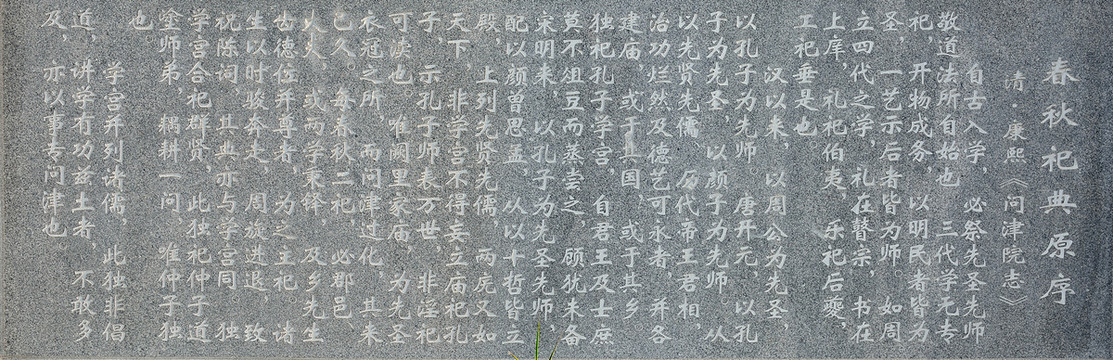 春秋祀典原序
清·康熙《问津院志》
自古入学，必祭先圣先师
敬道法所自始也 三代学无专
祀，开物成务，以明民者皆为
圣，一艺示后者皆为师 如周
立四代之学，礼在瞽宗，书在
上庠，礼祀伯夷，乐祀后夔，
工祀垂是也
汉以来，以周公为先圣，
以孔子为先师 唐开元，以孔
子为先圣，以颜子为先师 从
以先贤先儒、历代帝王君相，
治功烂然及德艺可永者，并各
建庙，或于其国，或于其乡
独祀孔子学宫，自君王及士庶
莫不俎豆而蒸尝之，顾犹未备
宋明来，以孔子为先圣先师，
配以颜曾思孟，从以十哲皆立
殿，上列先贤先儒，两庑又如
天下，非学宫不得妄立庙祀孔
子，示孔子师表万世，非淫祀
可渎也 唯阙里家庙，为先圣
衣冠之所，而问津过化，其来
已久。每春秋二祀，必郡邑、
大夫，或两学秉铎，及乡先生
齿德位并尊者，为之主祀 诸
生以时骏奔走，周旋进退，致
祝陈词，其典亦与学宫同 独
学宫合祀群贤，此独祀仲子道
塗师弟，耦耕一问，唯仲子独
也。
学宫并列诸儒，此独非倡
道，讲学有功兹土者，不敢多
及，亦以事专问津也